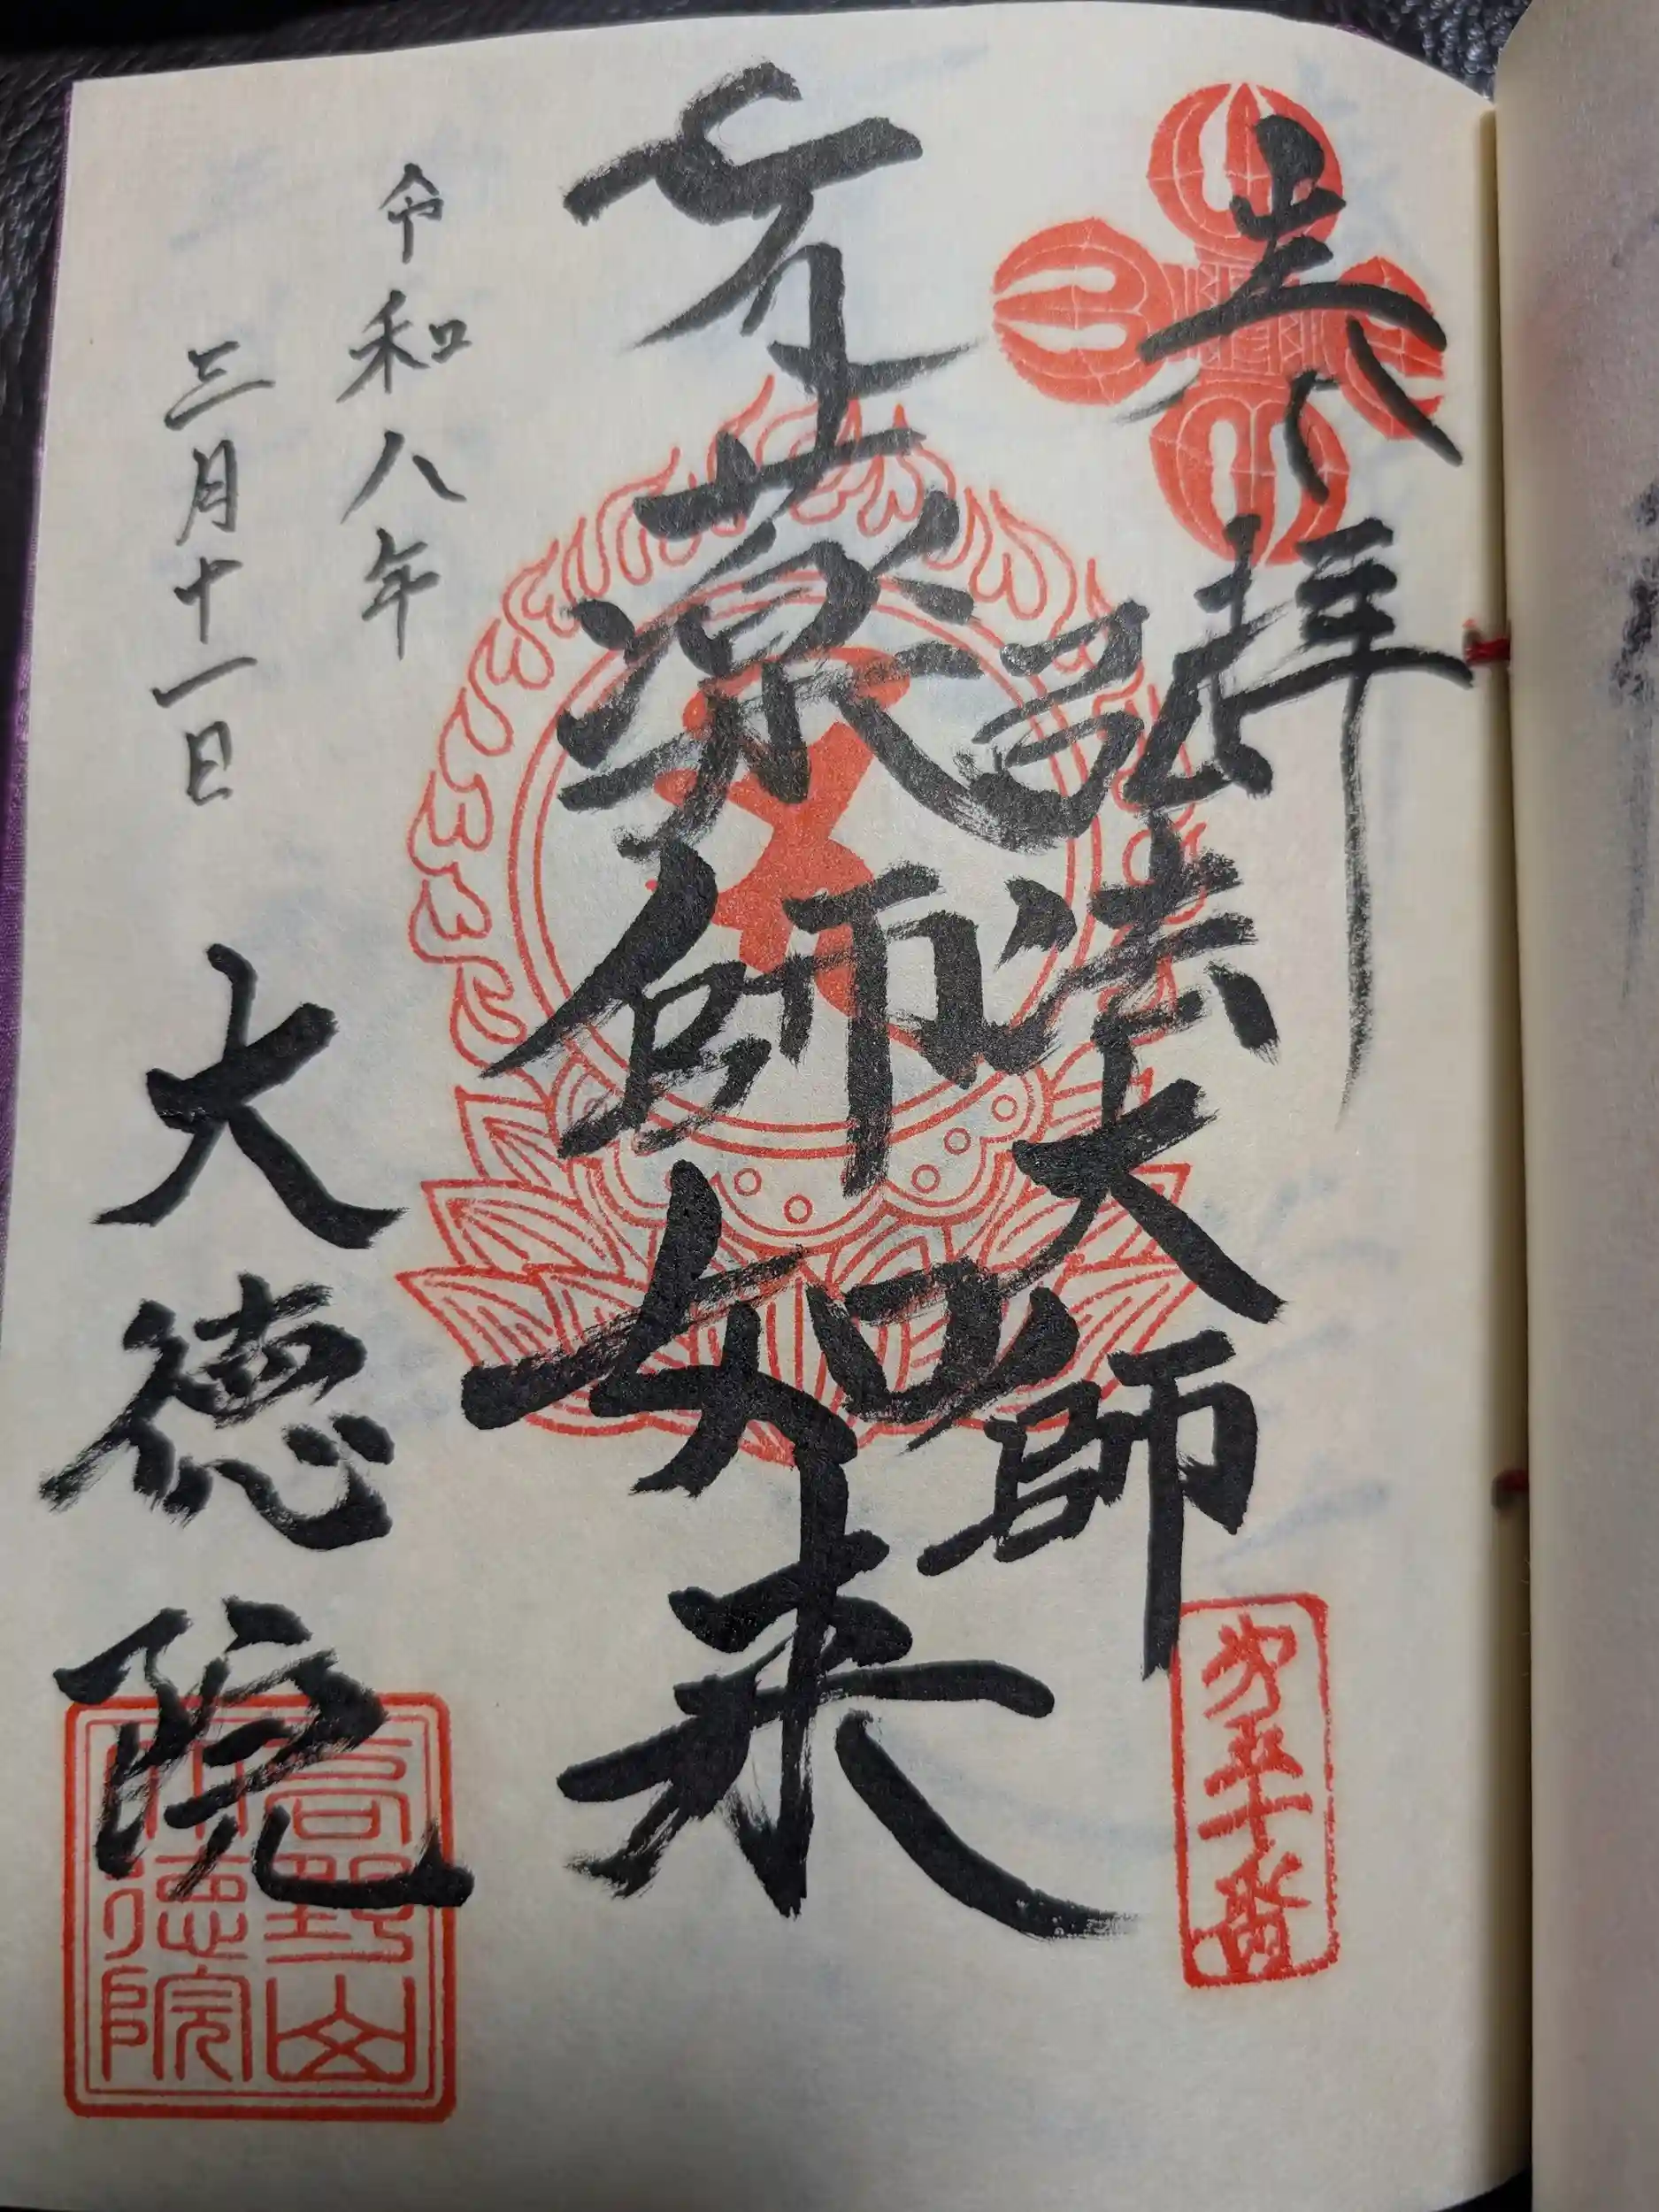 奉拝
弘法大師
第五十番
薬師如来
令和八年
三月十一日
大徳院
高野山
大徳院